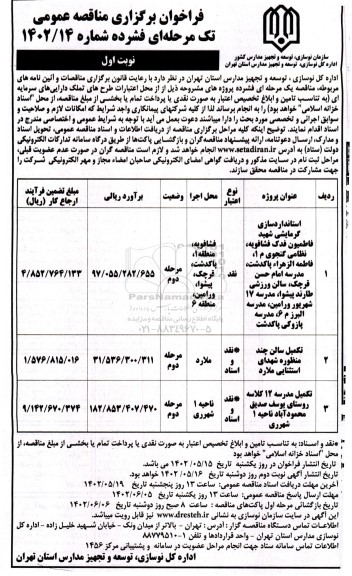 فراخوان برگزاری مناقصه عمومی
تک مرحله‌ای فشرده شماره ۱۴۰۲/۱۴
سازمان نوسازی، توسعه و تجهیز مدارس کشور
اداره کل نوسازی، توسعه و تجهیز مدارس استان تهران
نوبت اول
اداره کل نوسازی ، توسعه و تجهیز مدارس استان تهران در نظر دارد با رعایت قانون برگزاری مناقصات و آئین نامه های
مربوطه، مناقصه یک مرحله ای فشرده پروژه های مشروحه ذیل از از محل اعتبارات طرح های تملک دارایی‌های سرمایه
ای (به تناسب تامین و ابلاغ تخصیص اعتبار به صورت نقدی یا پرداخت تمام یا بخشی از مبلغ مناقصه، از محل "اسناد
خزانه اسلامی" خواهد بود) را به انجام برساند لذا از کلیه شرکتهای پیمانکاری واجد شرایط که امکانات لازم و صلاحیت و
سوابق اجرائی و تخصصی مورد بحث را دارا میباشند دعوت بعمل می آید با توجه به شرایط عمومی و اختصاصی مندرج در
اسناد اقدام نمایند. توضیح اینکه کلیه مراحل برگزاری مناقصه از دریافت اطلاعات و اسناد مناقصه عمومی، تحویل اسناد
و مدارک، ارسال دعوتنامه، ارائه پیشنهاد مناقصه‌گران و بازگشایی پاکت‌ها از طریق درگاه سامانه تدارکات الکترونیکی
دولت (ستاد) به آدرس www.setadiran.ir انجام خواهد شد و لازم است مناقصه گران در صورت عدم عضویت قبلی،
مراحل ثبت نام در سایت مذکور و دریافت گواهی امضای الکترونیکی صاحبان امضاء مجاز و مهر الکترونیکی شرکت را
جهت مشارکت در مناقصه محقق سازند.
ردیف عنوان پروژه نوع اعتبار محل اجرا وضعیت برآورد ریالی مبلغ تضمین فرآیند ارجاع کار (ریال)
۱ استانداردسازی گرمایشی شهید فاطمیون فدک فشافویه، نظامی گنجوی م ۱، فاطمه الزهراء پاکدشت، مدرسه امام حسن قرچک، سالن ورزشی طارند پیشوا، مدرسه ۱۷ شهریور ورامین، مدرسه البرز م ۶، مدرسه پازوکی پاکدشت نقد فشافویه، منطقه۱، پاکدشت، قرچک، پیشوا، ورامین، منطقه ۶ مرحله دوم ۹۷/۰۵۵/۲۸۲/۶۵۵ ۴/۸۵۲/۷۶۴/۱۳۳
۲ تکمیل سالن چند منظوره شهدای استثنایی ملارد *نقد و اسناد ملارد مرحله دوم ۳۱/۵۳۶/۳۰۰/۳۱۱ ۱/۵۷۶/۸۱۵/۰۱۶
۳ تکمیل مدرسه ۱۲ کلاسه روستای یوسف صدیق محمودآباد ناحیه ۱ شهرری *نقد و اسناد ناحیه ۱ شهرری مرحله دوم ۱۸۲/۸۵۳/۴۰۷/۴۷۰ ۹/۱۴۲/۶۷۰/۳۷۴
*نقد و اسناد: به تناسب تامین و ابلاغ تخصیص اعتبار به صورت نقدی یا پرداخت تمام یا بخشی از مبلغ مناقصه، از
محل "اسناد خزانه اسلامی" خواهد بود
تاریخ انتشار فراخوان در روز یکشنبه تاریخ ۱۴۰۲/۰۵/۱۵ می باشد.
تاریخ انتشار آگهی نوبت دوم روز دوشنبه تاریخ ۱۴۰۲/۰۵/۱۶ خواهد بود.
آخرین مهلت دریافت اسناد مناقصه عمومی: ساعت ۱۳ روز پنجشنبه تاریخ ۱۴۰۲/۰۵/۱۹
مهلت ارسال پاسخ مناقصه عمومی: ساعت ۱۳ روز یکشنبه تاریخ ۱۴۰۲/۰۶/۰۵
تاریخ بازگشائی مرحله اول پاکت‌های مناقصه: ساعت ۸ صبح روز دوشنبه تاریخ ۱۴۰۲/۰۶/۰۶
این آگهی در سایت سازمان نوسازی به نشانی www.dresteh.ir نیز قابل رویت میباشد.
اطلاعات تماس دستگاه مناقصه گزار : آدرس : تهران - بالاتر از میدان ونک - خیابان شهید خلیل زاده - اداره کل
نوسازی مدارس استان تهران - واحد قراردادها و تلفن ۱-۸۸۷۷۹۵۱۰
اطلاعات تماس سامانه ستاد جهت انجام مراحل عضویت در سامانه و پشتیبانی مرکز ۱۴۵۶
اداره کل نوسازی، توسعه و تجهیز مدارس استان تهران